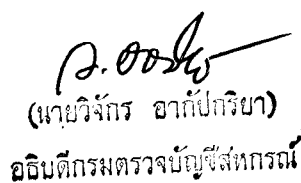 (นายวิจักร อากัปกริยา)
อธิบดีกรมตรวจบัญชีสหกรณ์